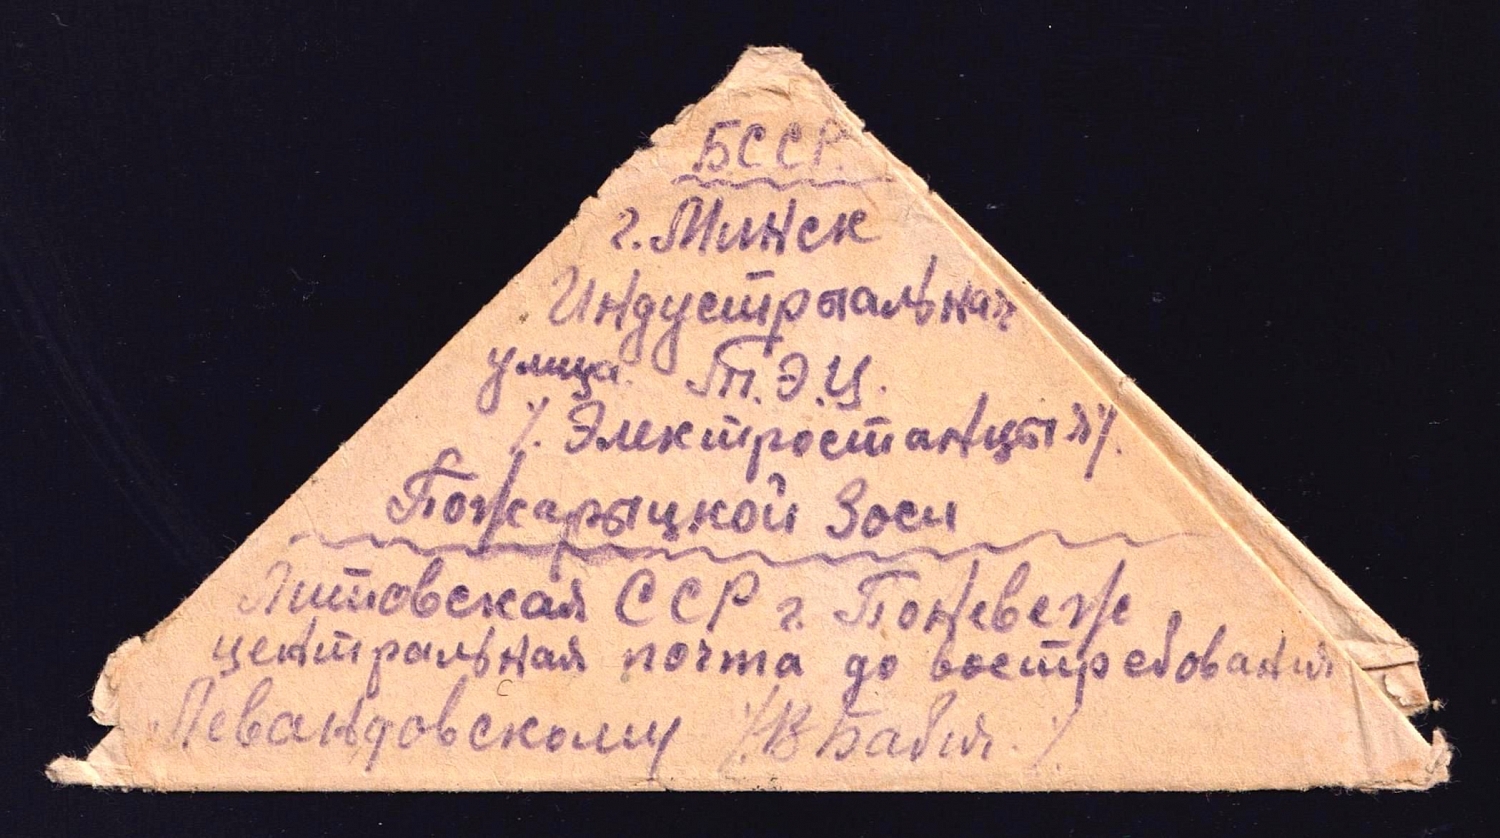 БССР.
г. Минск
Индустрыальная
улица. Т.Э.Ц.
/. Электростанцыя/.
Пожарыцкой Зоси
Литовская ССР г. Поневеже
центральная почта до востребования
Левандовскому